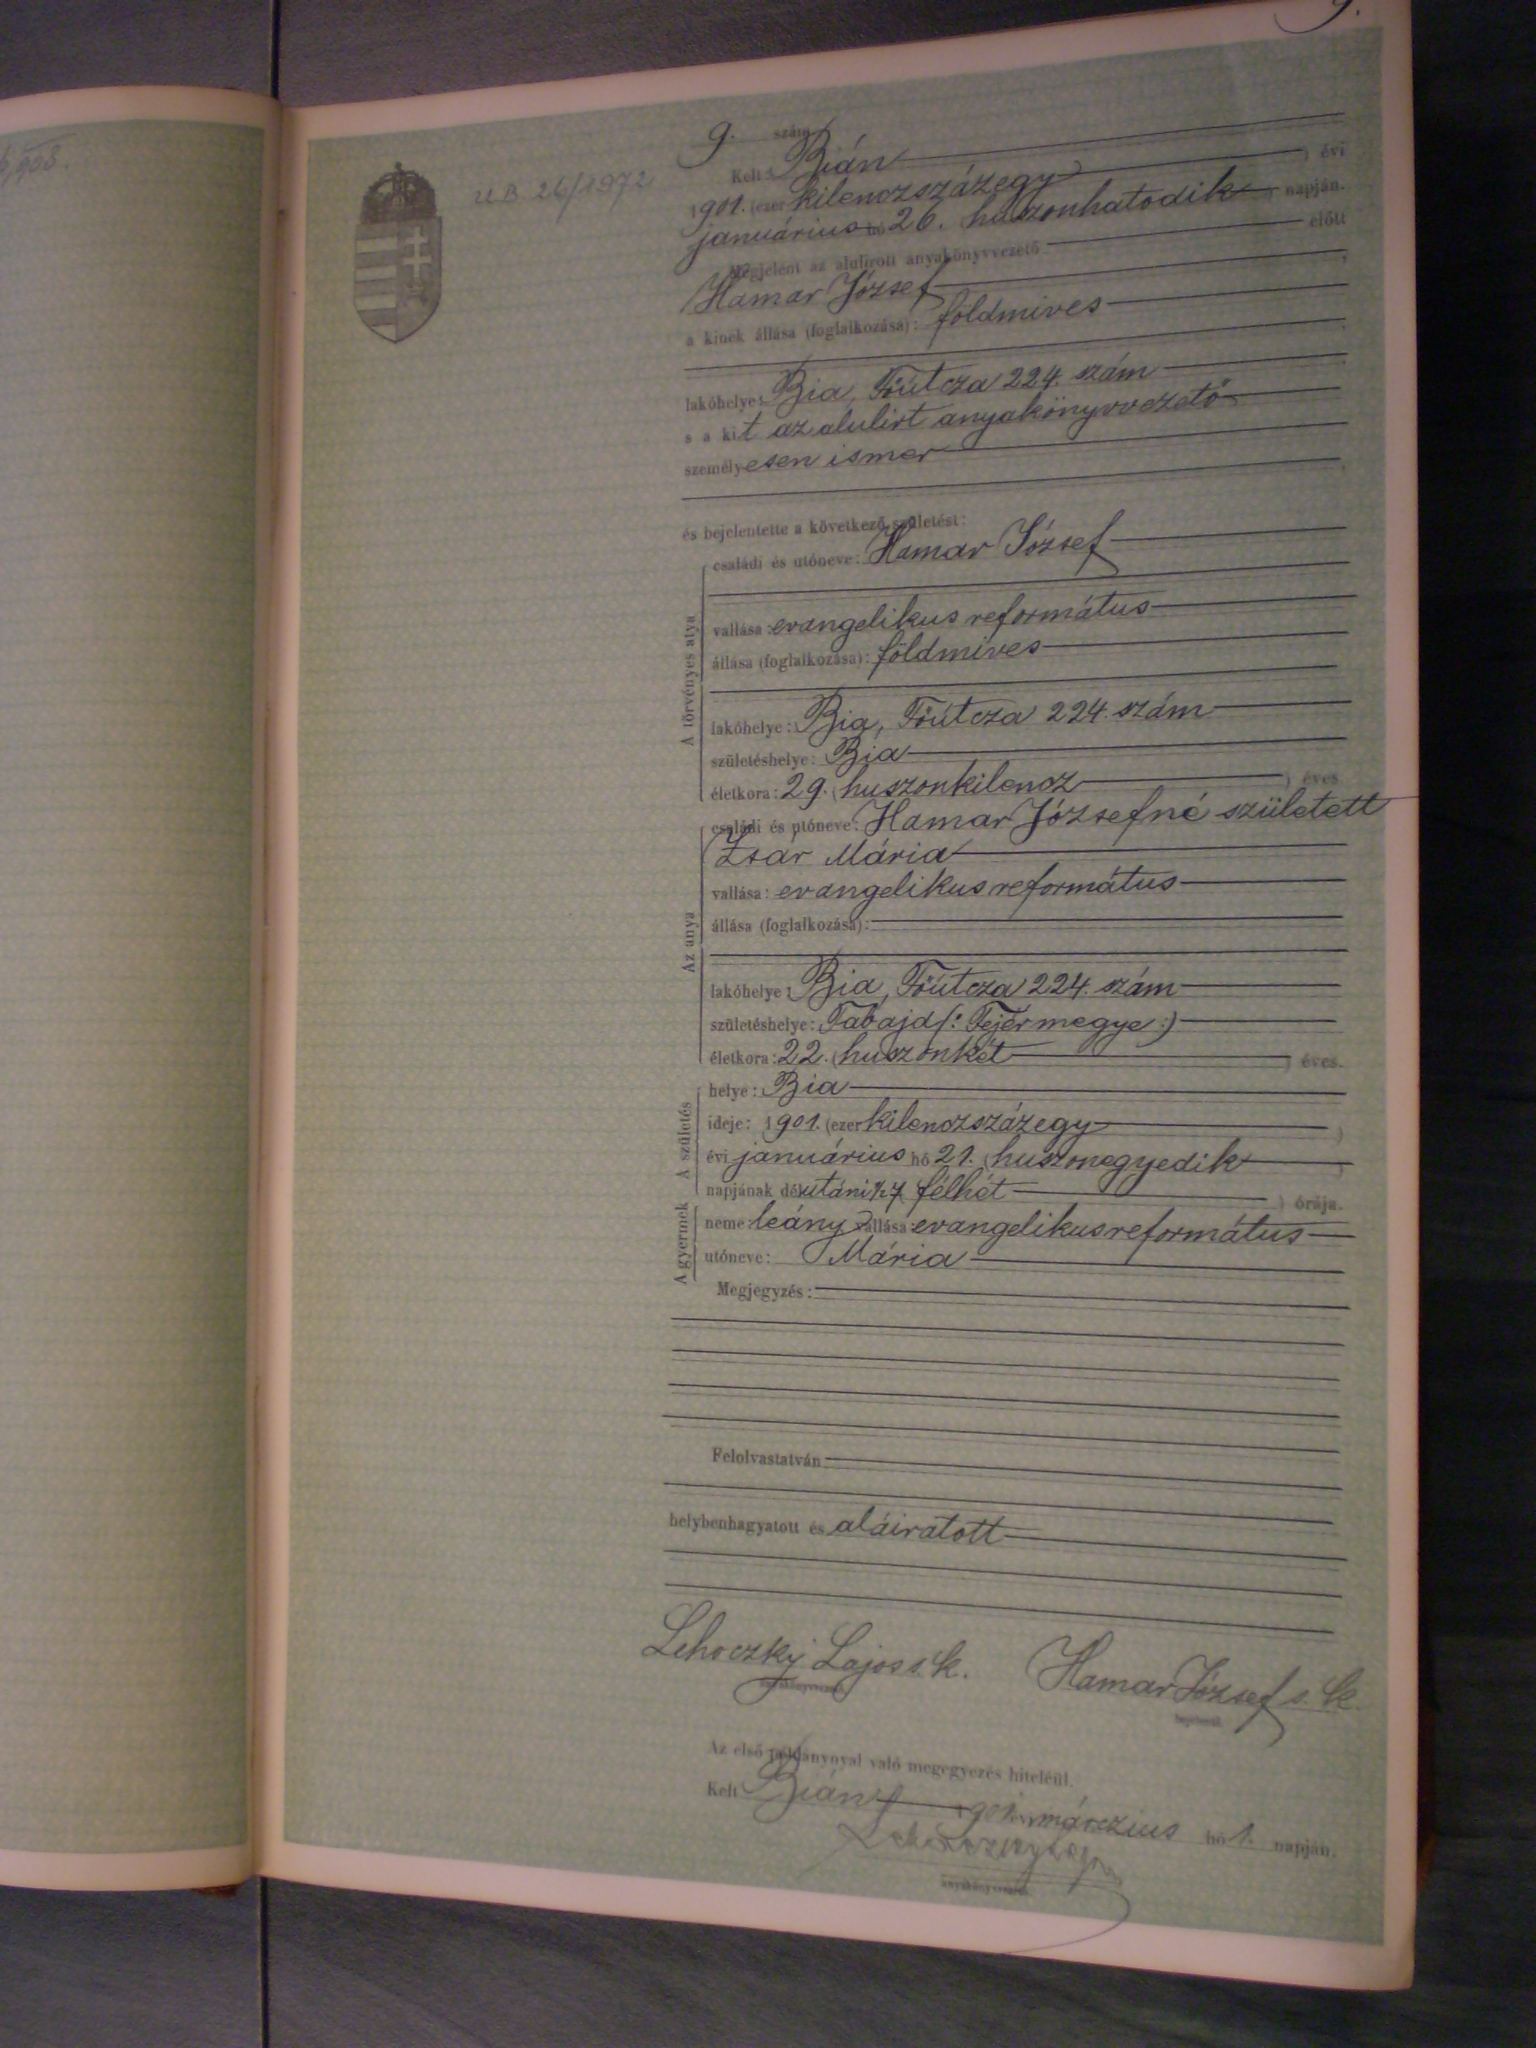 9.
6/1908.
U.B. 26/1972
9. szám
Kelt: Bián
1901. (ezer kilenczszázegy) évi
januárius hó 26. huszonhatodik napján.
Megjelent az alulirott anyakönyvvezető előtt
Hamar József
a kinek állása (foglalkozása): földmives
lakóhelye: Bia, Főútcza 224. szám
s a kit az alulirt anyakönyvvezető
személyesen ismer
és bejelentette a következő születést:
A törvényes atya
családi és utóneve: Hamar József
vallása: evangelikus református
állása (foglalkozása): földmives
lakóhelye: Bia, Főútcza 224. szám
születéshelye: Bia
életkora: 29. (huszonkilencz) éves
Az anya
családi és utóneve: Hamar Józsefné született
Zsár Mária
vallása: evangelikus református
állása (foglalkozása):
lakóhelye: Bia, Főútcza 224. szám
születéshelye: Tabajd (: Fejérmegye :)
életkora: 22. (huszonkét) éves.
A születés
helye: Bia
ideje: 1901. (ezer kilenczszázegy)
évi januárius hó 21. (huszonegyedik)
napjának délutáni ½7 (félhét) órája.
A gyermek
neme: leány vallása: evangelikus református
utóneve: Mária
Megjegyzés:
Felolvastatván
helybenhagyatott és aláiratott
Lehoczky Lajos s. k. Hamar József s. k.
anyakönyvvezető bejelentő
Az első példánynyal való megegyezés hiteléül.
Kelt Bián 1901. márczius hó 1. napján.
Lehoczky Lajos
anyakönyvvezető